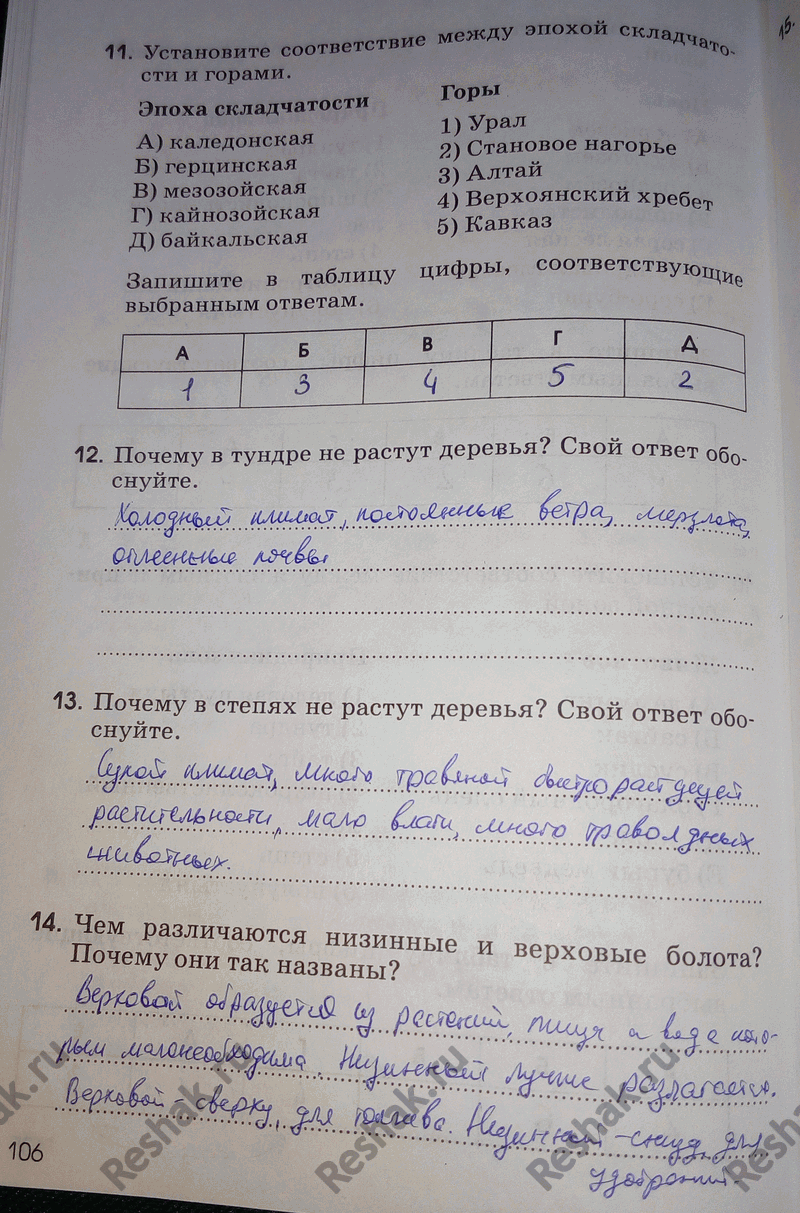 15.
11. Установите соответствие между эпохой складчато-
сти и горами.
Эпоха складчатости
А) каледонская
Б) герцинская
В) мезозойская
Г) кайнозойская
Д) байкальская
Горы
1) Урал
2) Становое нагорье
3) Алтай
4) Верхоянский хребет
5) Кавказ
Запишите в таблицу цифры, соответствующие
выбранным ответам.
А Б В Г Д
1 3 4 5 2
12. Почему в тундре не растут деревья? Свой ответ обо-
снуйте.
Холодный климат, постоянные ветра, мерзлота,
оглеенные почвы
13. Почему в степях не растут деревья? Свой ответ обо-
снуйте.
Сухой климат, много травяной быстро растущей
растительности, мало влаги, много травоядных
животных.
14. Чем различаются низинные и верховые болота?
Почему они так названы?
Верховой образуется из растений, пища и вода кото-
рым малонеобходима. Низинный лучше разлагается.
Верховой - сверху, для топлива. Низинный - снизу, для
удобрений.
106
Reshak.ru
Reshak.ru
Reshak.ru
Reshak.ru